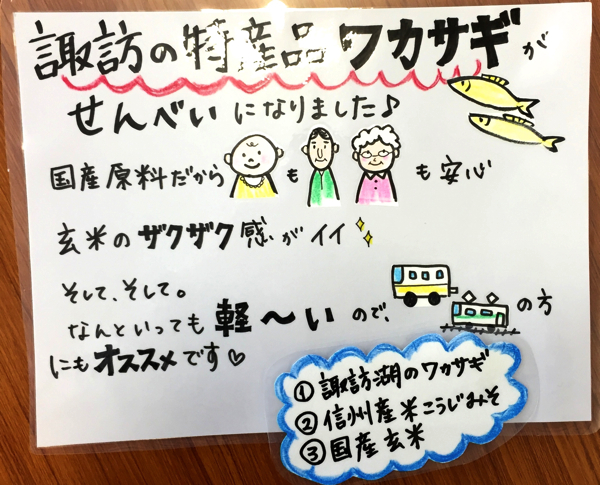 諏訪の特産品ワカサギが
せんべいになりました♪
国産原料だからも も安心
玄米のザクザク感がイイ
そして、そして。
なんといっても軽～いので、 の方
にもオススメです♡
①諏訪湖のワカサギ
②信州産米こうじみそ
③国産玄米